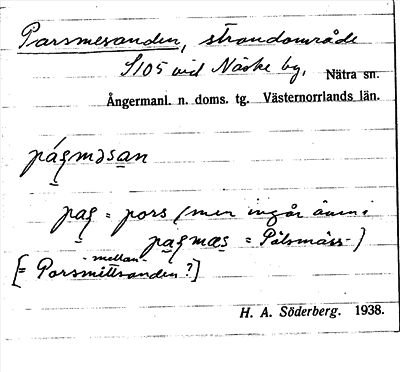 Parsmesanden, strandområde
S105 vid Näske by, Nätra sn.
Ångermanl. n. doms. tg. Västernorrlands län.
páşməsạn
pạş = pors (men ingår även i
pạşmæş = Pålsmäss-)
[= Porsmittsanden ?]
-mellan-
H. A. Söderberg. 1938.